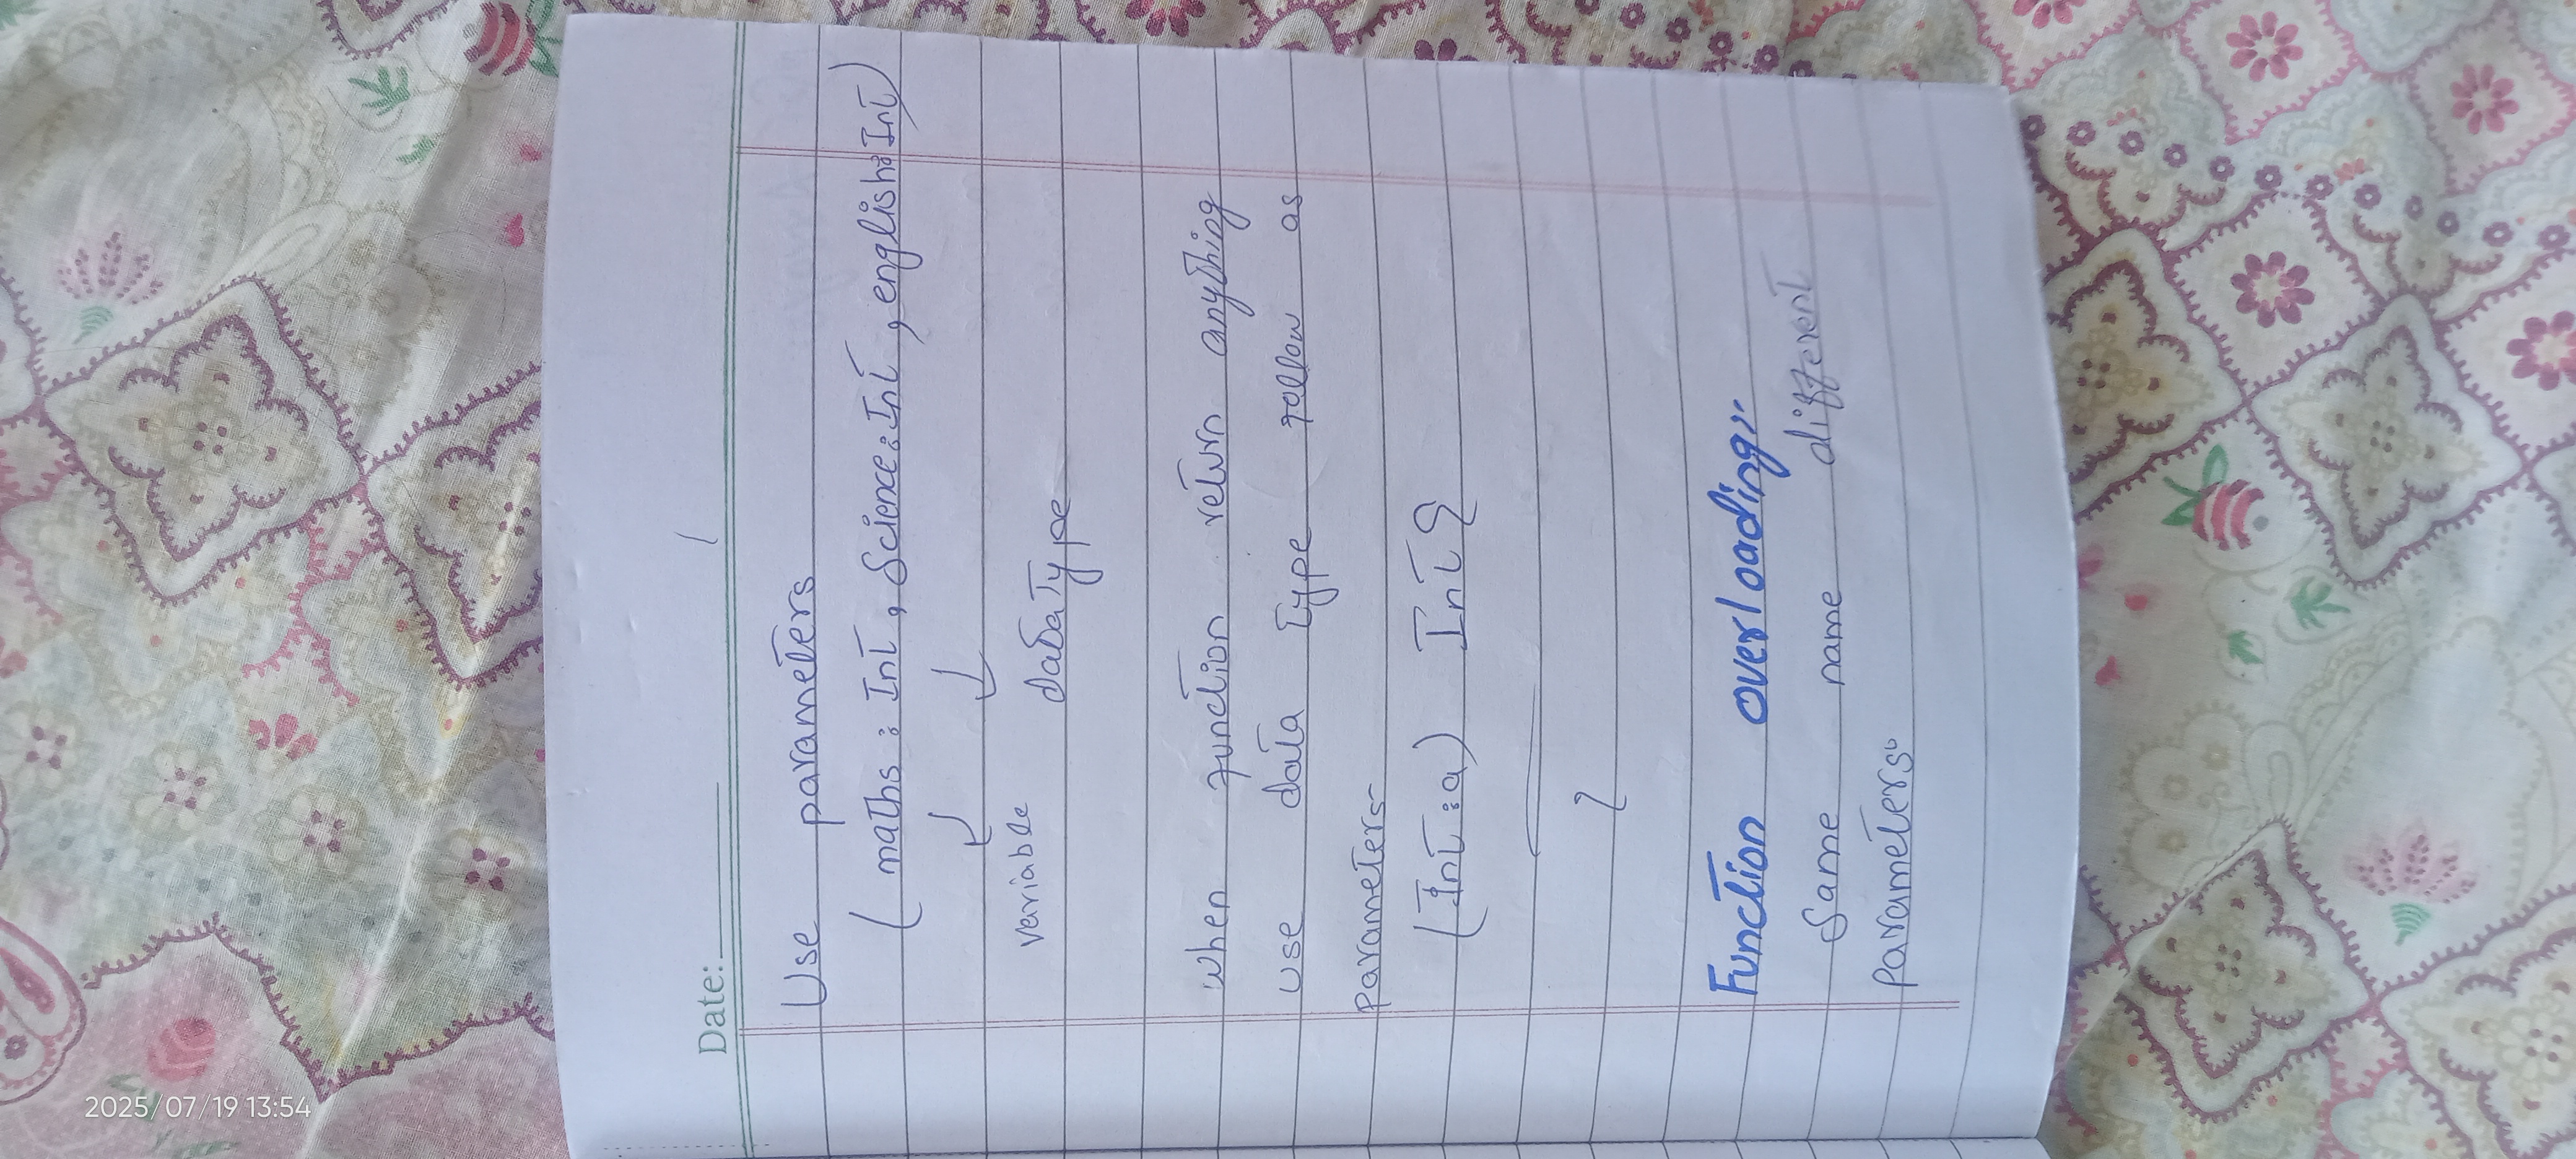 2025/07/19 13:54
Date:
Use parameters
( maths : Int , Science : Int , english : Int )
variable
data Type
when function return anything
use data type follow as
parameters-
(Int : a) Int {
}
Function overloading:-
Same name different
parameters.